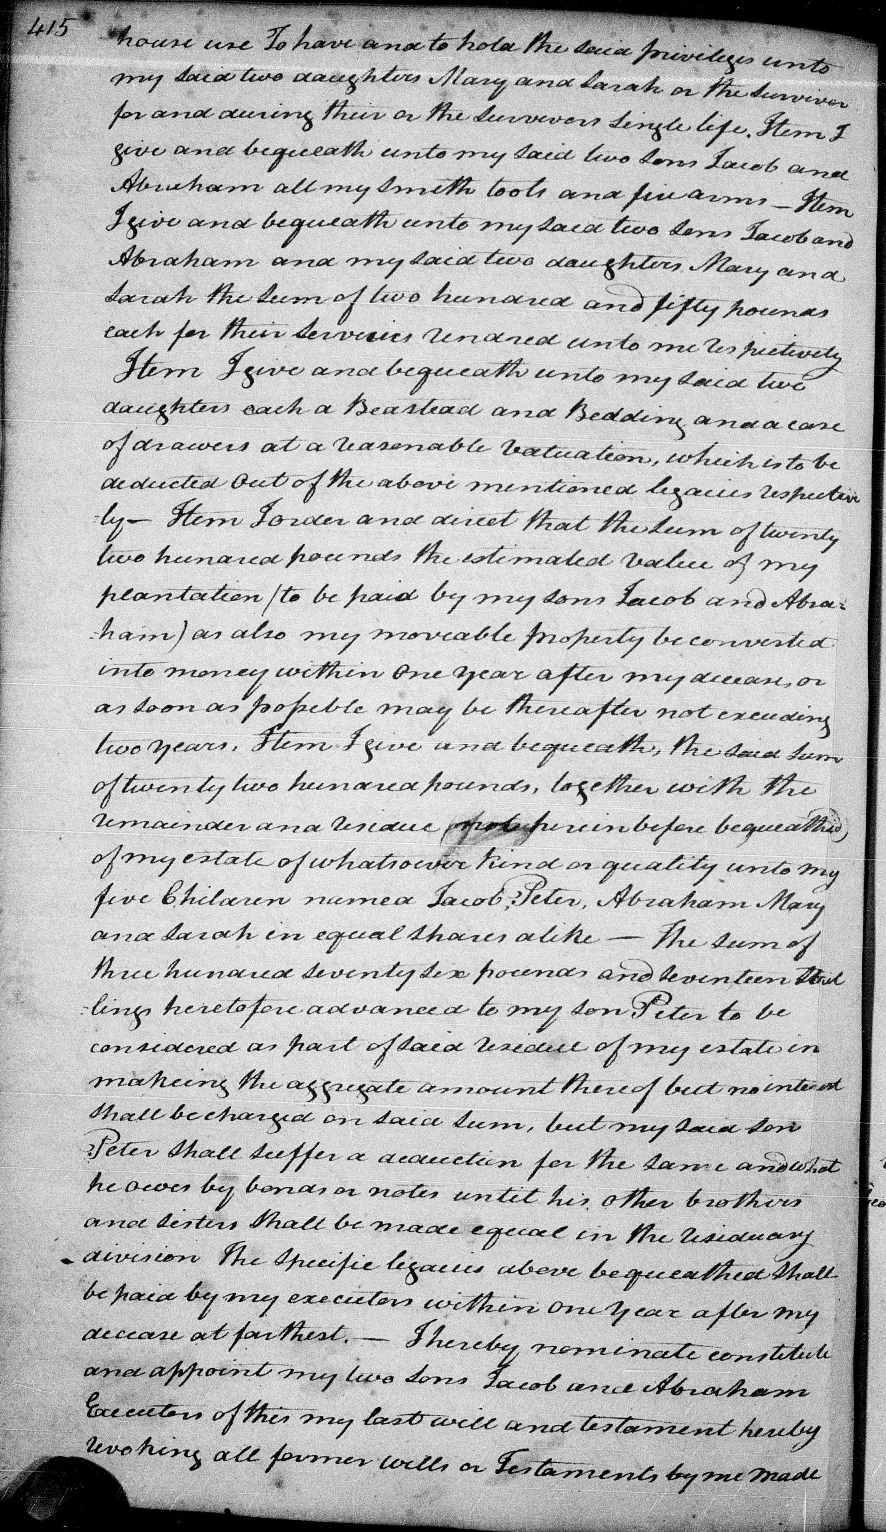 415
house use To have and to hold the said privileges unto
my said two daughters Mary and Sarah or the survivor
for and during their or the survivors single life. Item I
give and bequeath unto my said two sons Jacob and
Abraham all my smith tools and fire arms — Item
I give and bequeath unto my said two sons Jacob and
Abraham and my said two daughters Mary and
Sarah the sum of two hundred and fifty pounds
each for their services rendred unto me respectively
Item I give and bequeath unto my said two
daughters each a Beastead and Bedding and a case
of drawers at a reasonable valuation, which is to be
deducted out of the above mentioned legacies respective
ly — Item I order and direct that the sum of twenty
two hundred pounds the estimated value of my
plantation (to be paid by my sons Jacob and Abra-
-ham) as also my moveable property be converted
into money within one year after my decease, or
as soon as possible may be thereafter not exceeding
two years. Item I give and bequeath, the said sum
of twenty two hundred pounds, together with the
remainder and residue (not herein before bequeathed)
of my estate of whatsoever kind or quality unto my
five Children named Jacob, Peter, Abraham Mary
and Sarah in equal shares alike — The sum of
three hundred seventy six pounds and seventeen shil
-lings heretofore advanced to my son Peter to be
considered as part of said residue of my estate in
makeing the aggregate amount thereof but no interest
shall be charged on said sum, but my said son
Peter shall suffer a deduction for the same and what
he owes by bonds or notes until his other brothers
and sisters shall be made equal in the residuary
division The specific legacies above bequeathed shall
be paid by my executors within one year after my
decease at farthest. — I hereby nominate constitute
and appoint my two sons Jacob and Abraham
Executors of this my last will and testament hereby
revoking all former wills or Testaments by me made